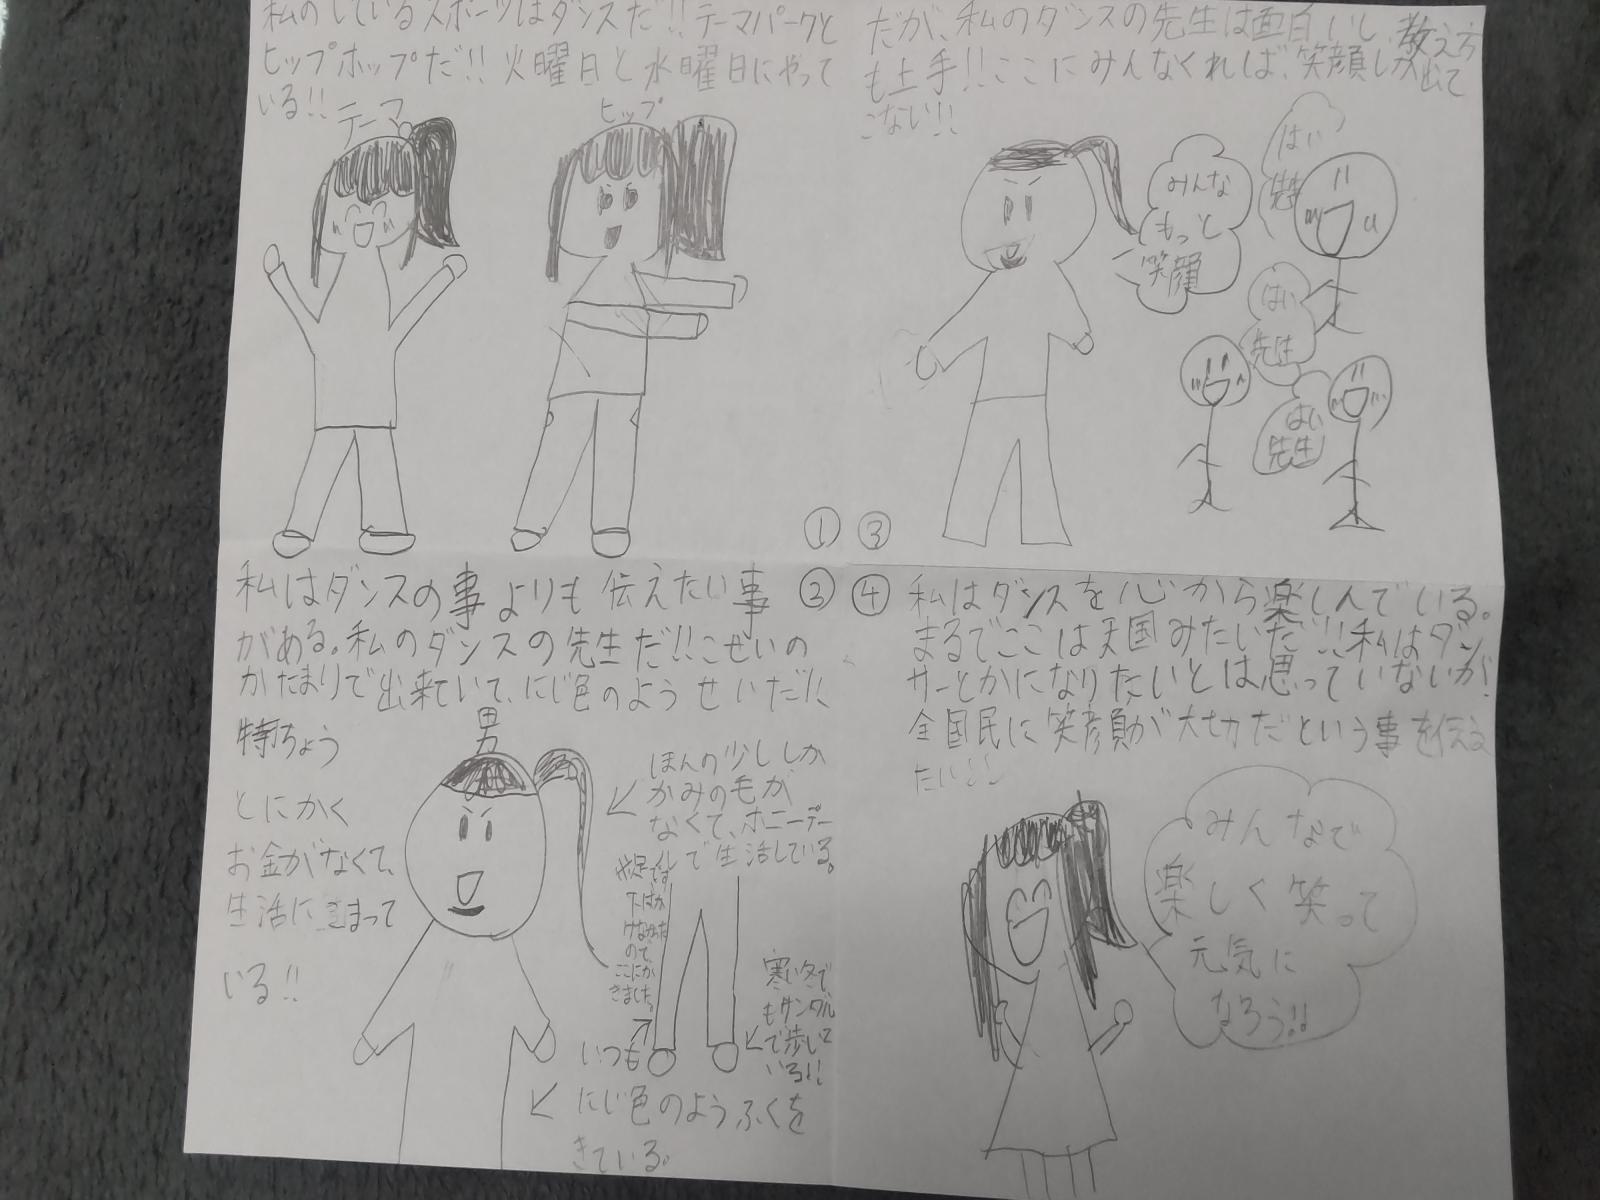 私のしているスポーツはダンスだ!!テーマパークと
ヒップホップだ!!火曜日と水曜日にやって
いる!!
テーマ
ヒップ
①
私はダンスの事よりも伝えたい事
がある。私のダンスの先生だ!!こせいの
かたまりで出来ていて、にじ色のようせいだ!!
②
特ちょう
とにかく
お金がなくて、
生活にこまって
いる!!
男
ほんの少ししか
かみの毛が
なくて、ポニーテー
ルで生活している。
下はか
けなかった
ので、
ここにか
きました。
寒い冬で
もサンダル
で歩いて
いる!!
いつも
にじ色のようふくを
きている。
だが、私のダンスの先生は面白いし、教え方
も上手!!ここにみんなくれば、笑顔しか出て
こない!!
③
みんな
もっと
笑顔
はい
はい
先生
はい
先生
④
私はダンスを心から楽しんでいる。
まるでここは天国みたいだ!!私はダン
サーとかになりたいとは思っていないが、
全国民に笑顔が大切だという事を伝え
たい!!
みんなで
楽しく笑って
元気に
なろう!!